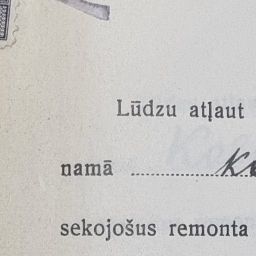 Lūdzu atļaut
namā
sekojošus remonta